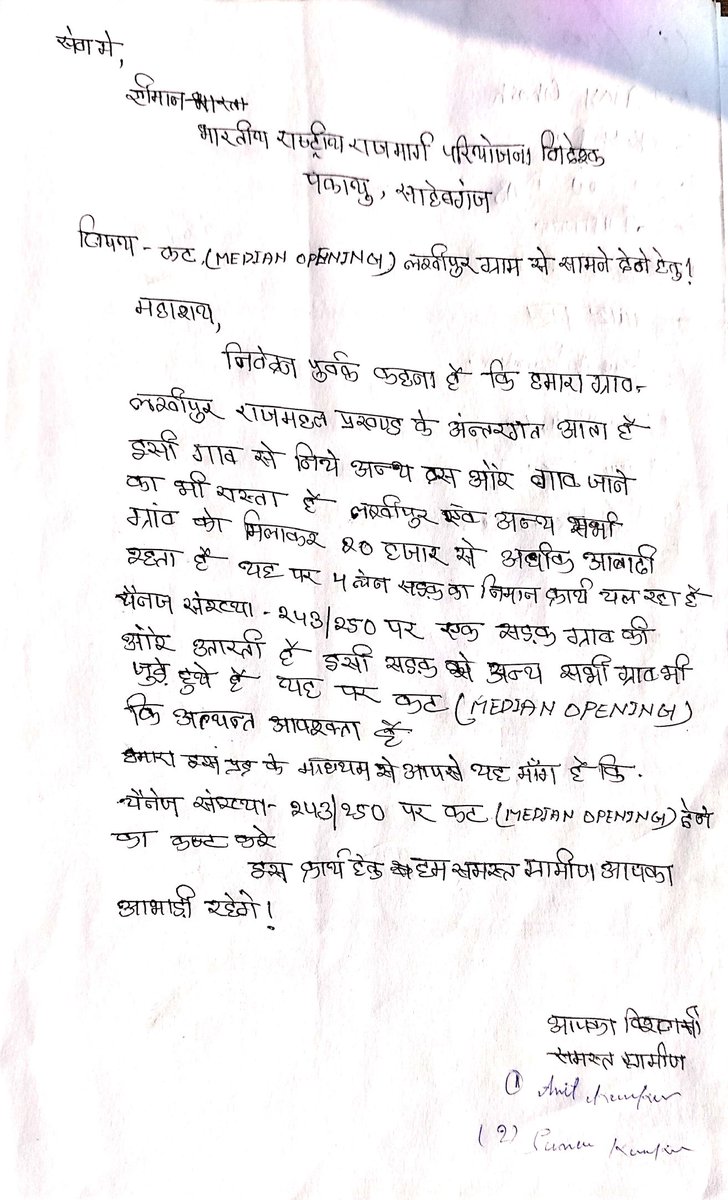 सेवा मे,
श्रीमान
भारतीय राष्ट्रीय राजमार्ग परियोजना निदेशक
पकायु, साहेबगंज
विषय - कट (MEDIAN OPENING) लखीपुर ग्राम से सामने देने हेतु!
महाशय,
निवेदन पुर्वक कहना है कि हमारा ग्राव-
लखीपुर राजमहल प्रखण्ड के अंन्तरगत आता है
इसी गाव से निचे अन्य दस ओरे गाव जाने
का भी रास्ता है लखीपुर एवं अन्य सभी
ग्रांव को मिलाकर 20 हजार से अधीक आबादी
रहता है यह पर 4 लेन सड़क का निमान कार्य चल रहा है
चैनेज संख्या - 243/250 पर एक सड़क ग्राव की
ओरे उतारती है इसी सड़क से अन्य सभी ग्राव भी
जुड़े हुये है यह पर कट (MEDIAN OPENING)
कि अत्यन्त आवश्कता है
हमारा इस पत्र के माध्यम से आपसे यह माँग है कि.
चैनेज संख्या- 243/250 पर कट (MEDIAN OPENING) देने
का कष्ट करे
इस कार्य हेतु हम समस्त ग्रामीण आपका
आभारी रहेगे!
आपका विश्वासी
समस्त ग्रामीण
① Anil Kumar
(2) Kumar